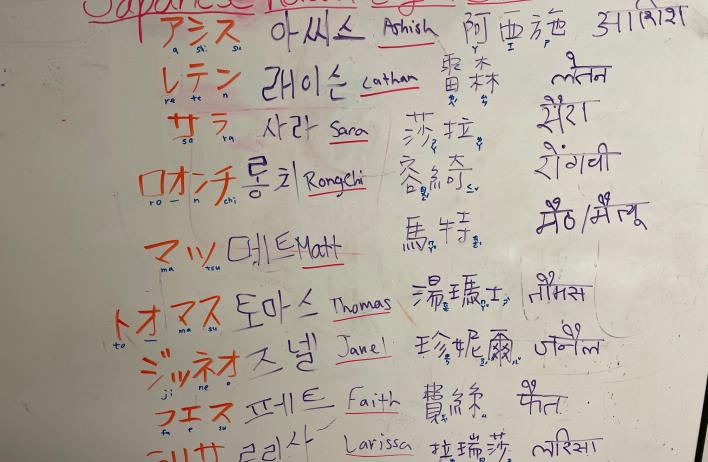 Japanese
アシス 아씨스 Ashish 阿西施 आशिश
a shi su
レテン 래이슨 Lathan 雷森 लेतन
re te n
サラ 사라 Sara 莎拉 सैरा
sa ra
ロオンチ 롱치 Rongchi 容綺 रोंगची
ro n chi
マツ 메트 Matt 馬特 मैठ/मैत्यू
ma tsu
トオマス 토마스 Thomas 湯瑪士 तौमस
to ma su
ジッネオ 즈넬 Janel 珍妮爾 जनैल
ji ne o
フエス 페트 Faith 費絲 फैत
fa e su
리리사 Larissa 拉瑞莎 लरिसा